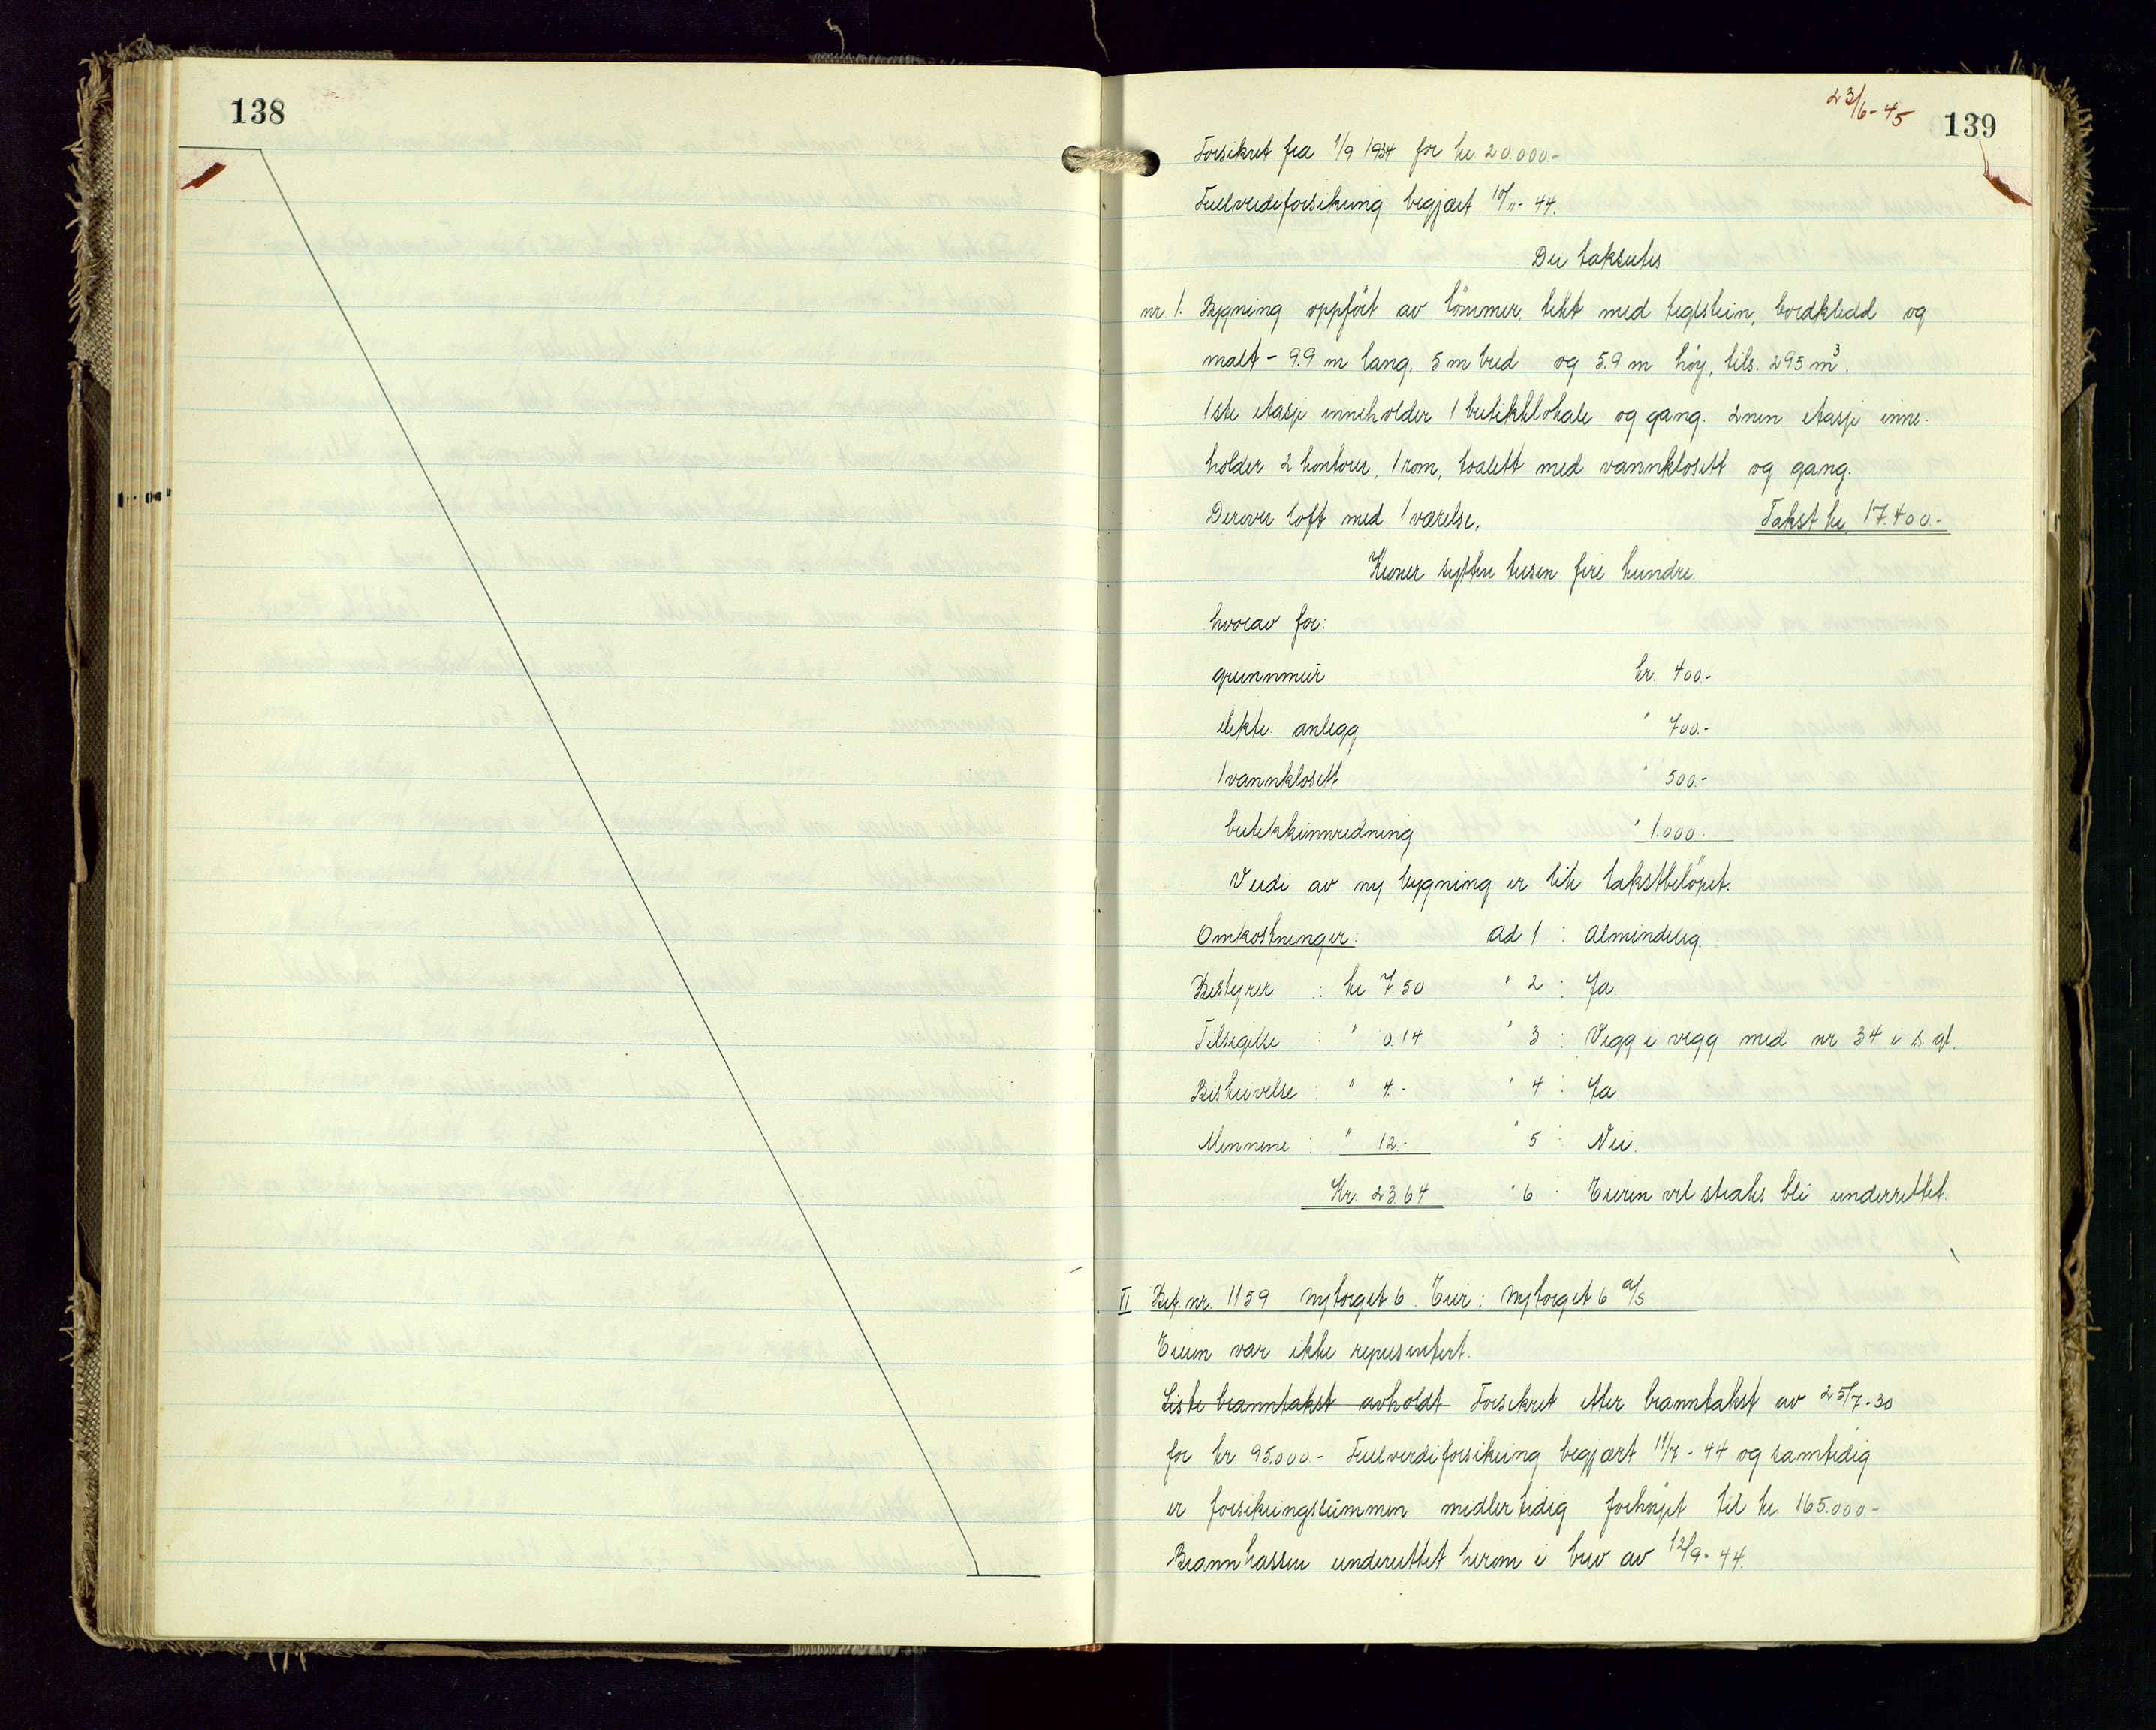 138
23/6-45
139
Forsikret fra 1/9 1934 for kr. 20.000.-
Fullverdiforsikring begjært 10/11-44.
Der takseres
nr. 1. Bygning oppført av tömmer, tekt med teglstein, bordkledd og
malt - 9.9 m lang, 5 m bred og 5.9 m høy, tils. 295 m³.
1ste etasje inneholder 1 butikklokale og gang. 2nen etasje inne-
holder 2 kontorer, 1 rom, toalett med vannklosett og gang.
Derover loft med 1 værelse. Takst kr. 17.400.-
Kroner sytten tusen fire hundre.
hvorav for:
grunnmur kr. 400.-
elektr. anlegg " 700.-
1 vannklosett " 500.-
butikkinnredning " 1.000.-
Verdi av ny bygning er lik takstbelöpet.
Omkostninger: ad 1 : Almindelig.
Bestyrer : kr 7.50 " 2 : Ja
Tilsigelse : " 0.14 " 3 : Vegg i vegg med nr 34 i s. gt.
Beskrivelse : " 4.- " 4 : Ja
Mennene : " 12.- " 5 : Nei.
Kr. 23.64 " 6 : Eieren vil straks bli underrettet.
II Bef. nr. 1159 Nytorget 6. Eier: Nytorget 6 a/s
Eieren var ikke representert.
Siste branntakst avholdt Forsikret etter branntakst av 25/7-30
for kr. 95.000.- Fullverdiforsikring begjært 11/7-44 og samtidig
er forsikringssummen midlertidig forhöjet til kr. 165.000.-
Brannkassen underrettet herom i brev av 12/9-44.